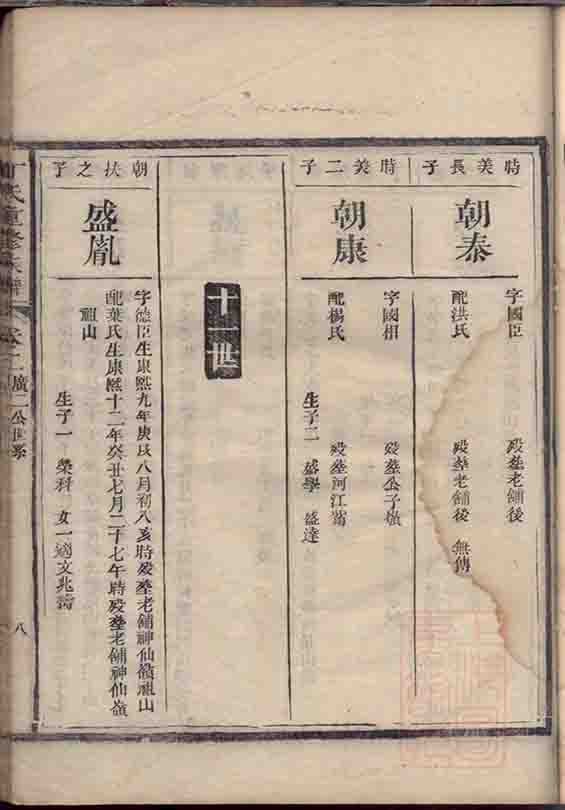 時美長子
朝泰
字國臣 歿塟老鋪後
配洪氏 歿塟老鋪後 無傳
時美二子
朝康
字國相 歿塟公子嶺
配楊氏 歿塟河江
生子二 盛學 盛達
十一世
朝扶之子
盛胤
字德臣生康熙九年庚戌八月初八亥時歿塟老鋪神仙嶺祖山
配葉氏生康熙十二年癸丑七月二十七午時歿塟老鋪神仙嶺
祖山
生子一 榮科 女一適文兆
氏重修族譜
卷之二 廣二公世系
八